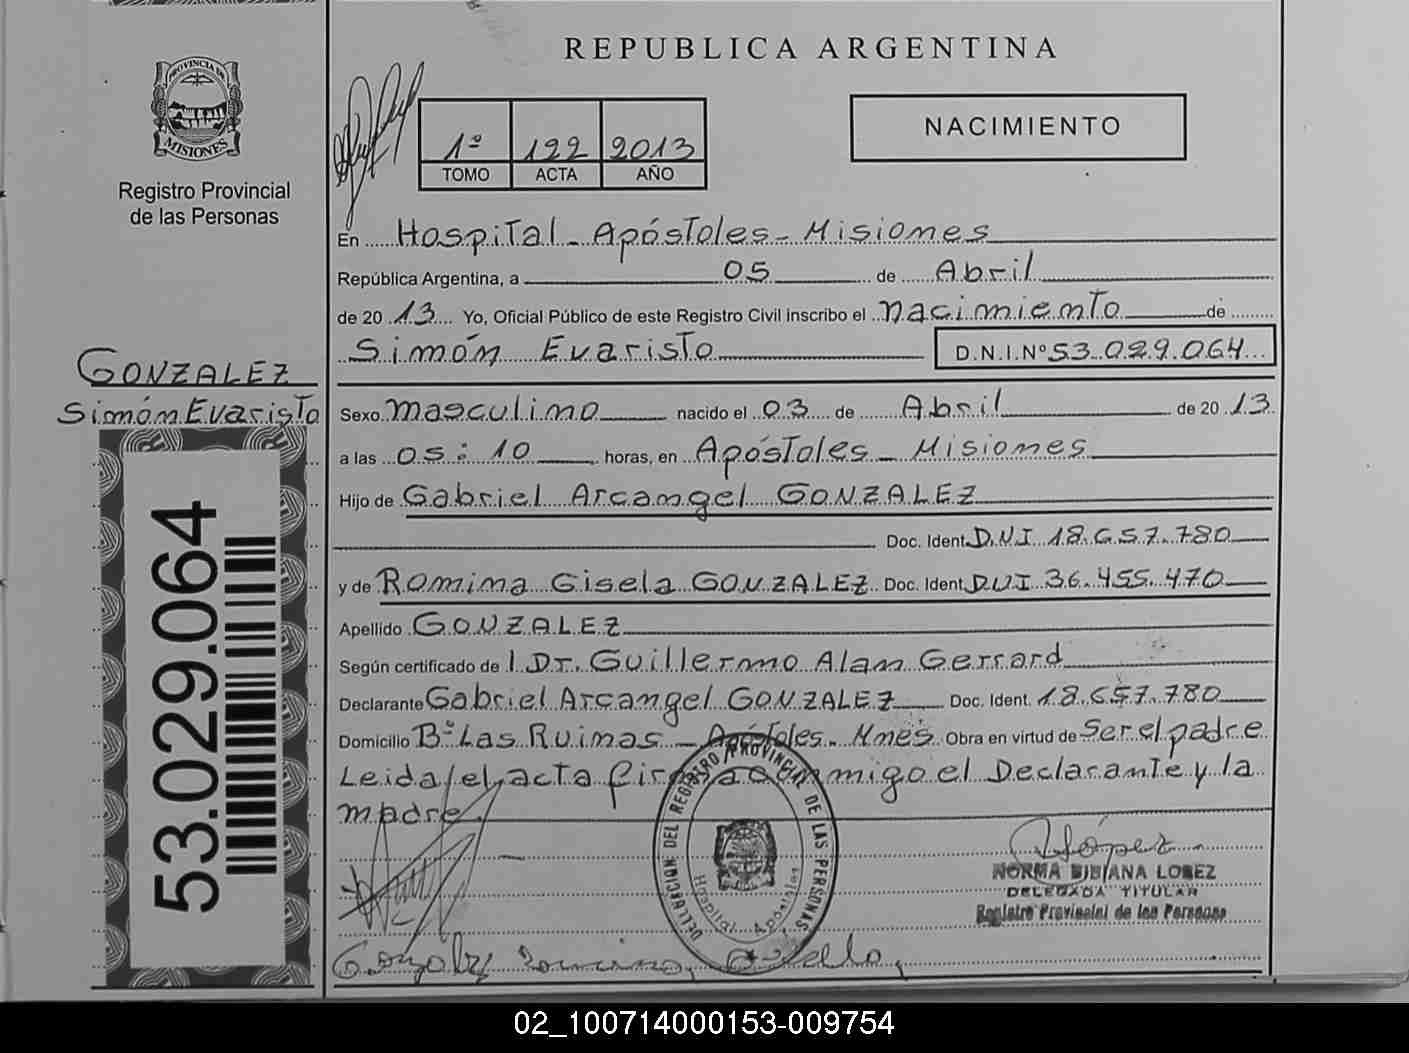 REPUBLICA ARGENTINA
PROVINCIA DE
MISIONES
Registro Provincial
de las Personas
1º 122 2013
TOMO ACTA AÑO
NACIMIENTO
En Hospital - Apóstoles - Misiones
República Argentina, a 05 de Abril
de 20 13 Yo, Oficial Público de este Registro Civil inscribo el nacimiento de
Simón Evaristo D.N.I.Nº 53.029.064
GONZALEZ
Simón Evaristo
Sexo masculino nacido el 03 de Abril de 20 13
a las 05:10 horas, en Apóstoles - Misiones
Hijo de Gabriel Arcangel GONZALEZ
Doc. Ident. D.N.I 18.657.780
y de Romina Gisela GONZALEZ Doc. Ident. DNI 36.455.470
Apellido GONZALEZ
Según certificado de l Dr. Guillermo Alan Gerrard
Declarante Gabriel Arcangel GONZALEZ Doc. Ident. 18.657.780
Domicilio Bº Las Ruinas - Apóstoles - Mnes Obra en virtud de Ser el padre
Leida el acta firma conmigo el Declarante y la
madre.
53.029.064
DELEGACION DEL REGISTRO PROVINCIAL DE LAS PERSONAS
Hospital Apóstoles
López
NORMA BIBIANA LOPEZ
DELEGADA TITULAR
Registro Provincial de las Personas
Gonzalez Romina Gisela
02_100714000153-009754